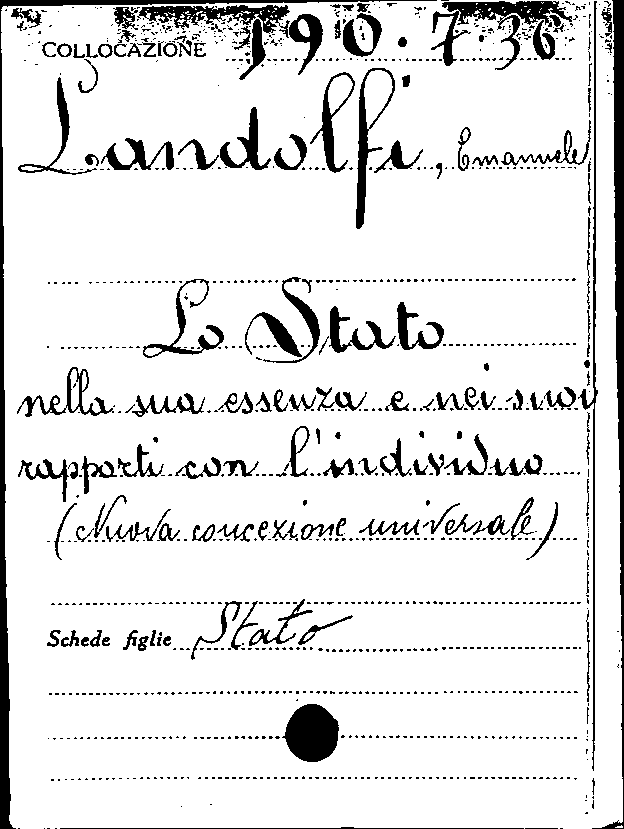 COLLOCAZIONE 190.7.36
Landolfi, Emanuele
Lo Stato
nella sua essenza e nei suoi
rapporti con l'individuo
(Nuova concezione universale)
Schede figlie Stato